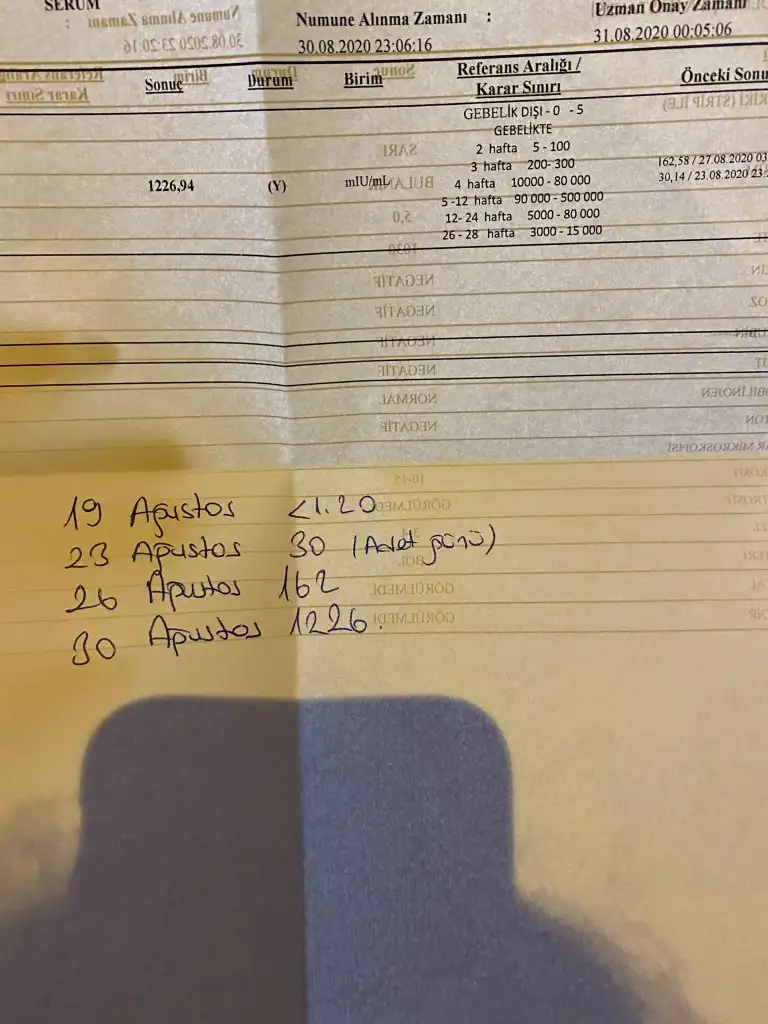 SERUM
Numune Alınma Zamanı :
30.08.2020 23:06:16
Uzman Onay Zamanı
31.08.2020 00:05:06
Sonuç Durum Birim Referans Aralığı / Karar Sınırı Önceki Sonu
GEBELİK DIŞI - 0 - 5
GEBELİKTE
2 hafta 5 - 100
3 hafta 200- 300
162,58 / 27.08.2020 03
1226,94 (Y) mIU/mL 4 hafta 10000 - 80 000
30,14 / 23.08.2020 23:
5 -12 hafta 90 000 - 500 000
12- 24 hafta 5000 - 80 000
26 - 28 hafta 3000 - 15 000
19 Ağustos <1.20
23 Ağustos 30 (Adet günü)
26 Ağustos 162
30 Ağustos 1226.